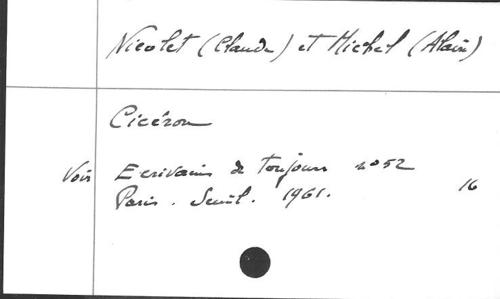 Nicolet (Claude) et Michel (Alain)
Cicéron
Voir Ecrivains de toujours n° 52
Paris. Seuil. 1961. 16